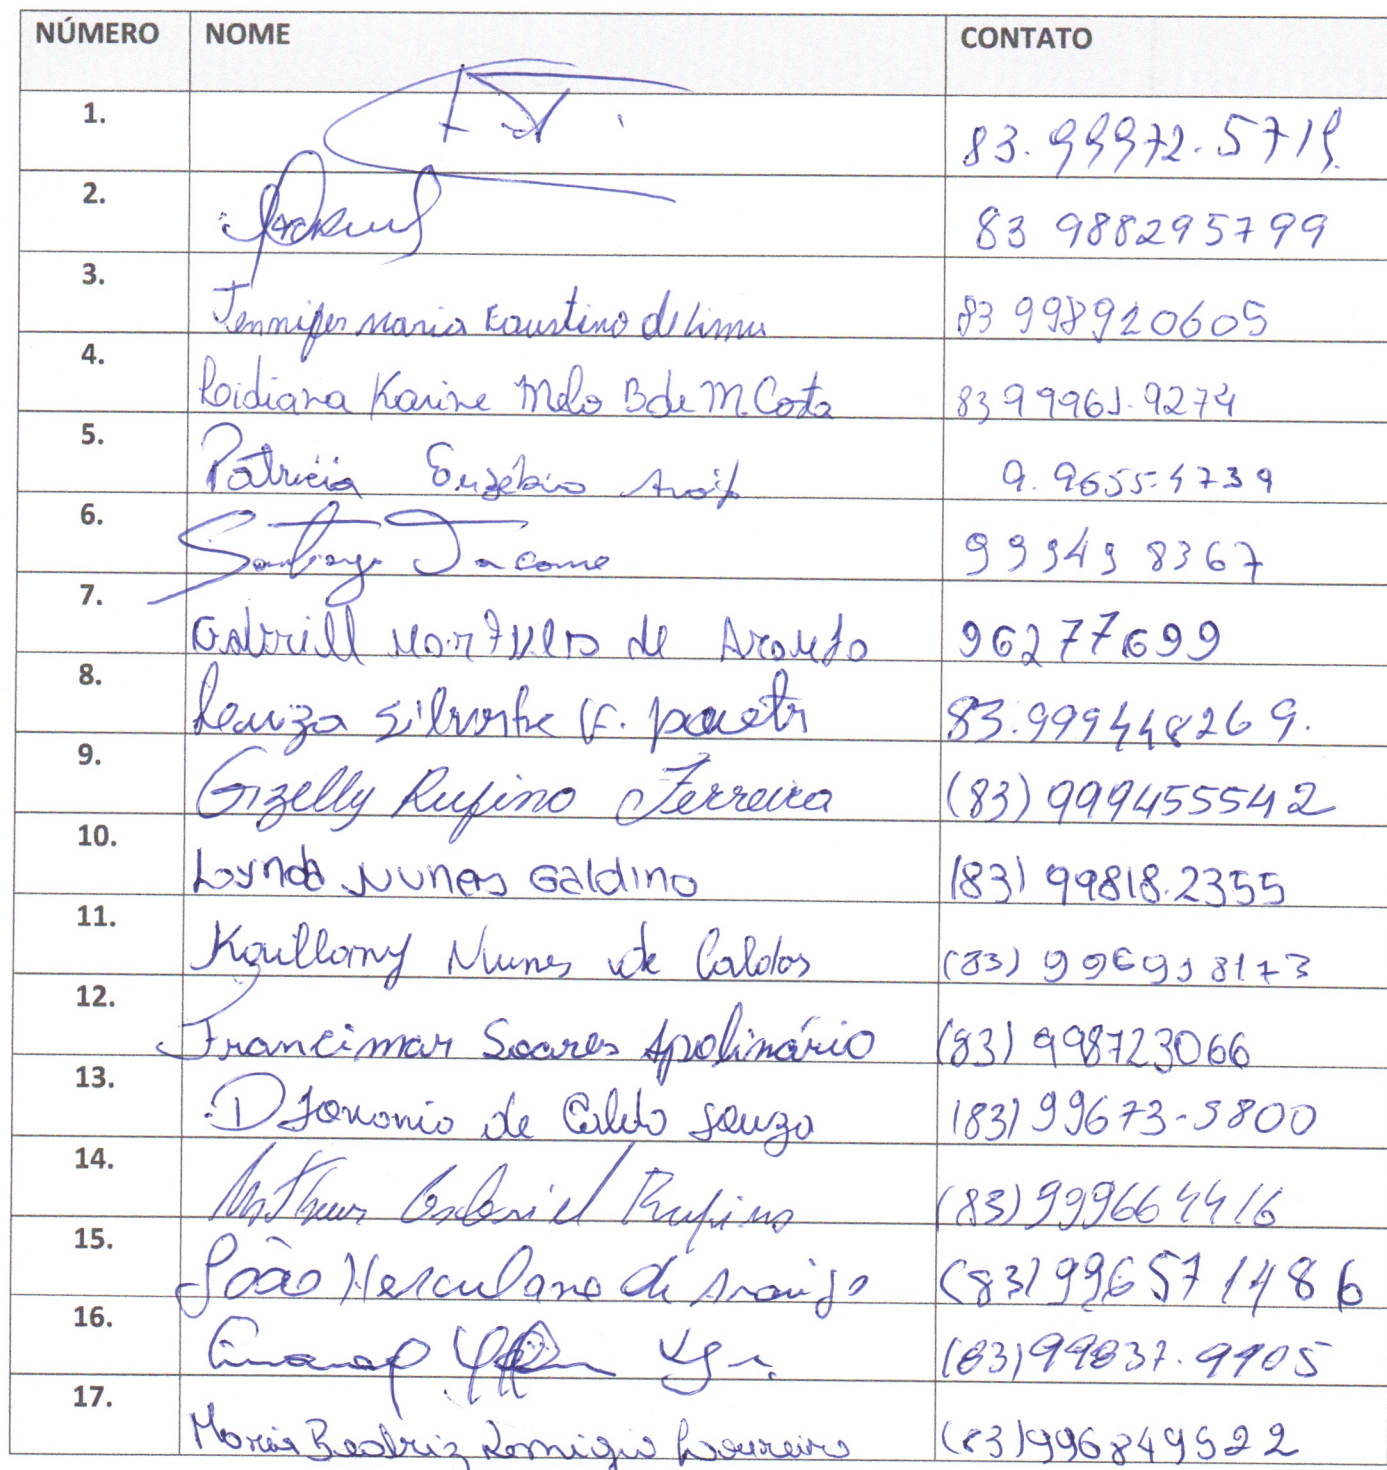 NÚMERO NOME CONTATO
1. 83.99972.5719
2. 83 988295799
3. Jennifer Maria Faustino de Lima 83 998920605
4. Loidiana Karine Melo B de M. Costa 83 99961.9274
5. Patricia Euzébio 9.9655-4739
6. Santiago Jacome 99949 8367
7. Gabriell de Araujo 96277699
8. Leuza Silvestre F. 83.999448269.
9. Gizelly Rufino Ferreira (83) 999455542
10. Lynda Nunes Galdino (83) 99818.2355
11. Kaullany Nunes de Caldas (83) 996998173
12. Francimar Soares Apolinário (83) 998723066
13. de Souza (83) 99673-5800
14. Matheus Gabriel Rufino (83) 999664416
15. João Herculano de Araújo (83) 996571486
16. (83) 99837.9905
17. Maria Beatriz Remigio Loureiro (83) 996849522